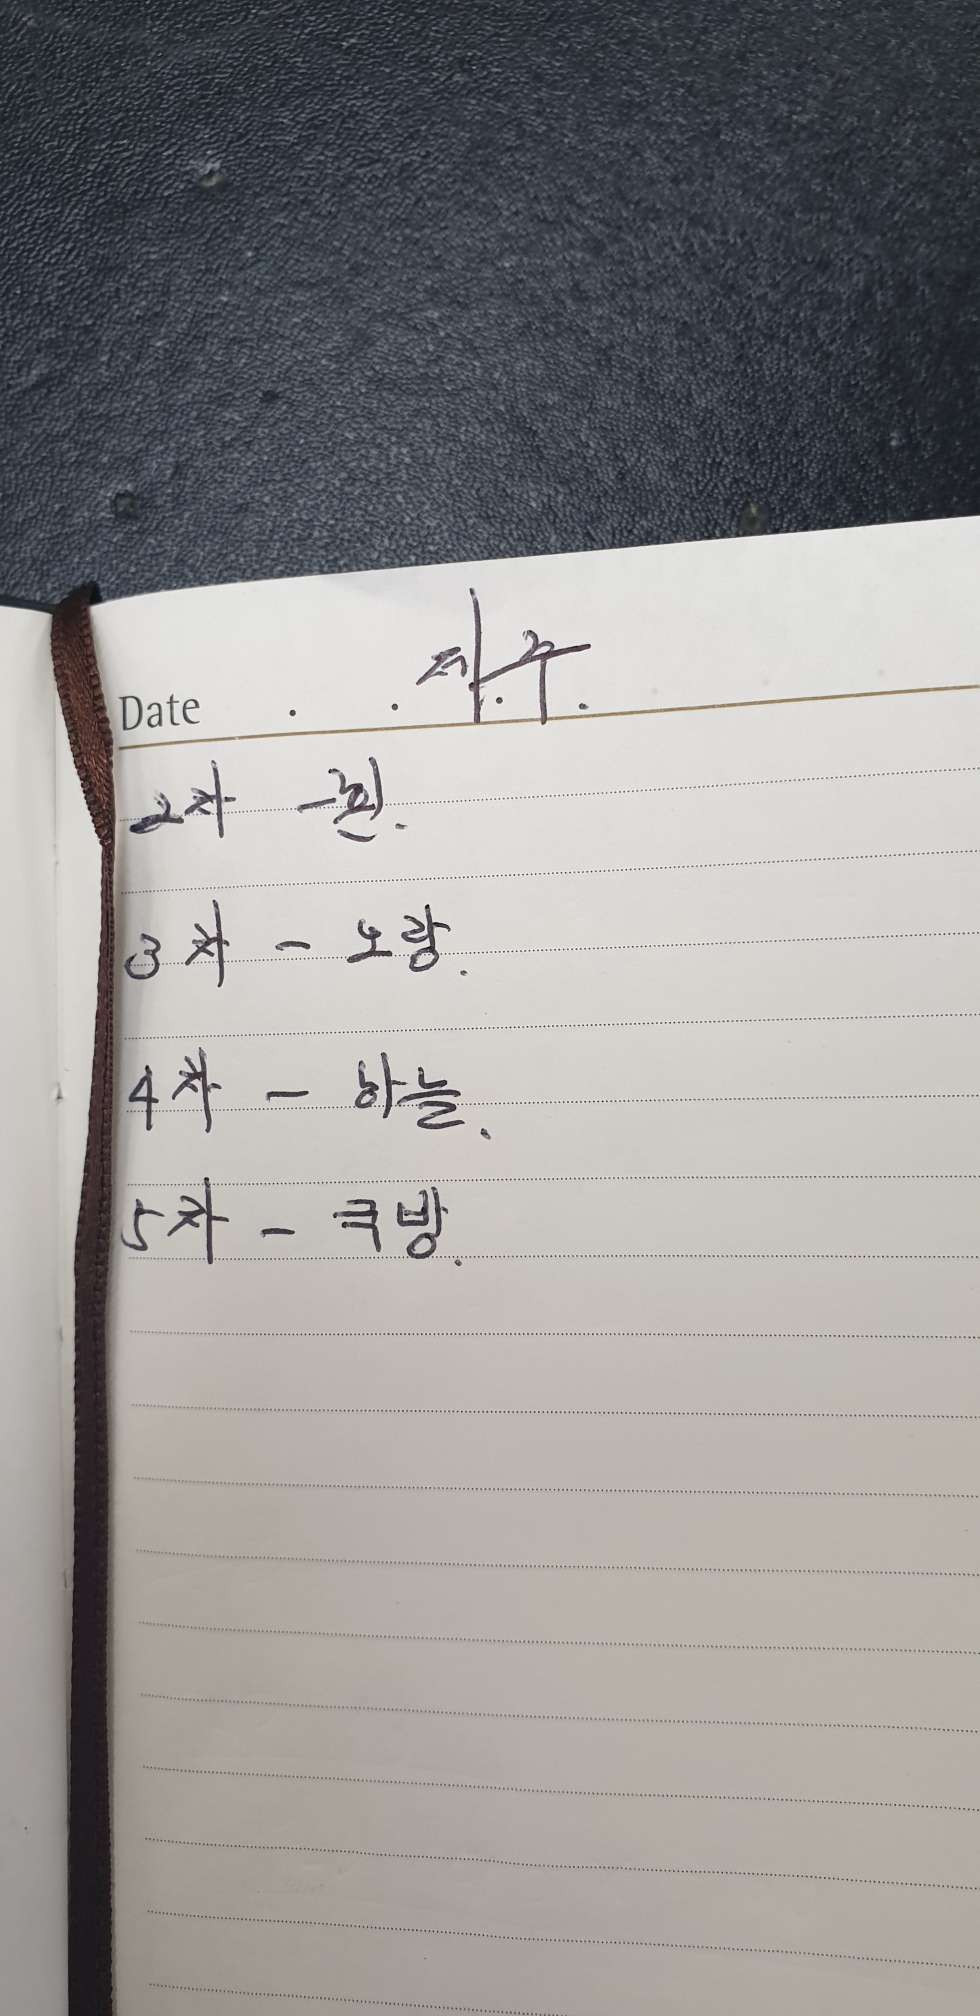 제주
Date . . . .
2차 - 흰.
3차 - 노랑.
4차 - 하늘.
5차 - 국방.